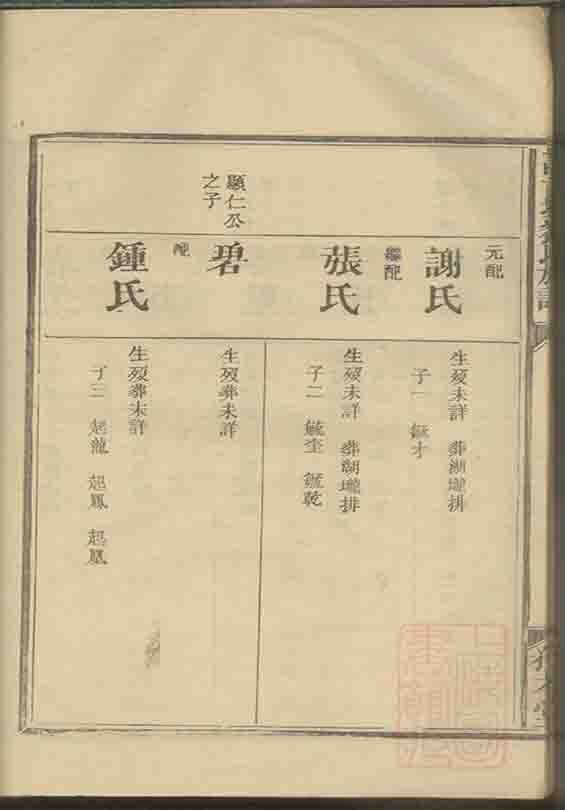 元配
謝氏
生歿未詳 葬湖壠排
子一 毓才
繼配
張氏
生歿未詳 葬湖壠排
子二 毓奎 毓乾
顯仁公
之子
碧
生歿葬未詳
配
鍾氏
生歿葬未詳
子三 起龍 起鳳 起凰